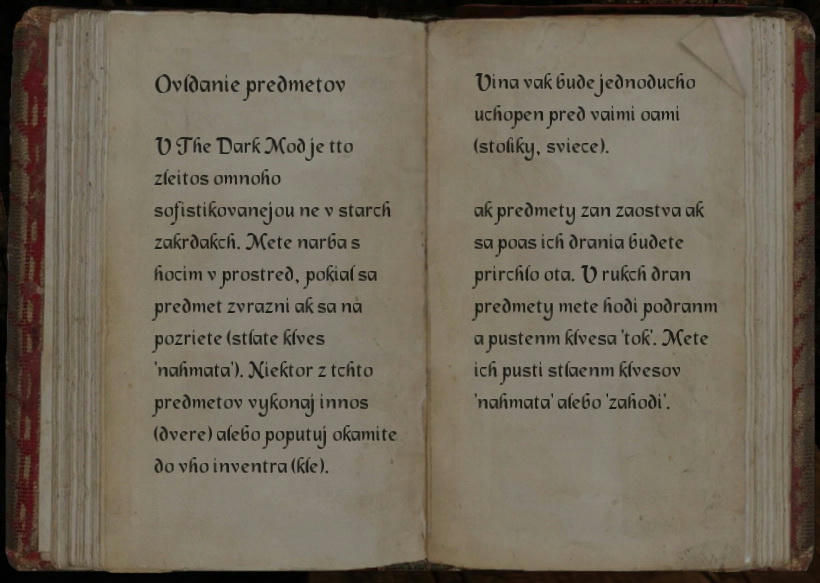 Ovldanie predmetov
V The Dark Mod je tto
zleitos omnoho
sofistikovanejou ne v starch
zakrdakch. Mete narba s
hocim v prostred, pokial sa
predmet zvrazni ak sa na
pozriete (stlate klves
'nahmata'). Niektor z tchto
predmetov vykonaj innos
(dvere) alebo poputuj okamite
do vho inventra (kle).
Vina vak bude jednoducho
uchopen pred vaimi oami
(stoliky, sviece).
ak predmety zan zaostva ak
sa poas ich drania budete
prirchlo ota. V rukch dran
predmety mete hodi podranm
a pustenm klvesa 'tok'. Mete
ich pusti stlaenm klvesov
'nahmata' alebo 'zahodi'.